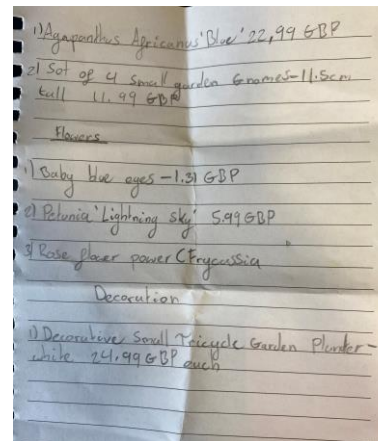 1) Agapanthus Africanus 'Blue' 22,99 GBP
2) Set of 4 small garden Gnomes - 11.5cm
tall 11.99 GBP
Flowers
1) Baby blue eyes - 1.31 GBP
2) Petunia 'Lightning sky' 5.99 GBP
3) Rose flower power (Frycassia
Decoration
1) Decorative Small Tricycle Garden Planter -
white 24.99 GBP each